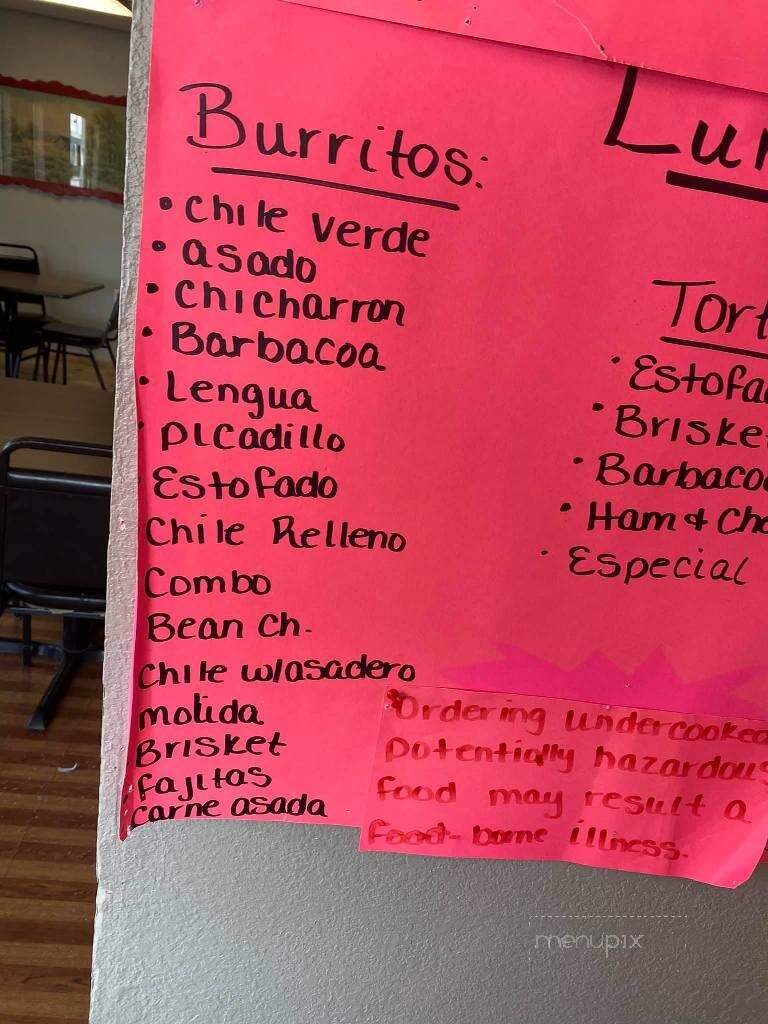 Burritos:
• Chile verde
• asado
• Chicharron
• Barbacoa
• Lengua
• Picadillo
Estofado
Chile Relleno
Combo
Bean Ch.
Chile w/asadero
molida
Brisket
fajitas
carne asada
• Brisket
• Ham &
• Especial
Ordering undercooked
potentially hazardous
food may result a
food-borne illness.
menupix